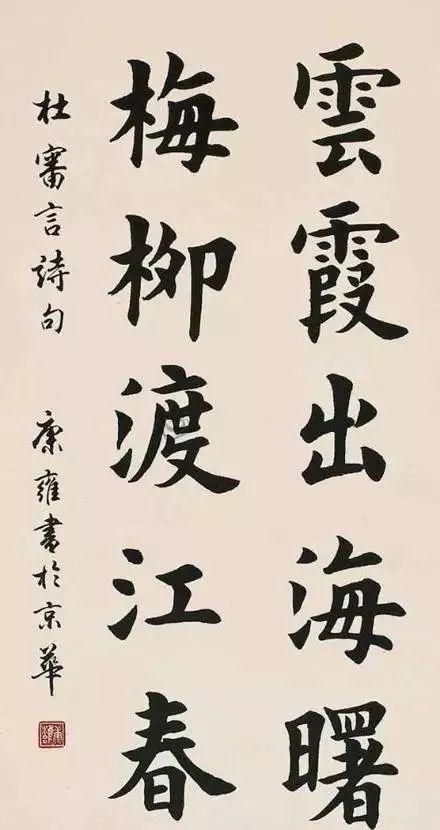 雲霞出海曙
梅柳渡江春
杜審言詩句 康雍書於京華